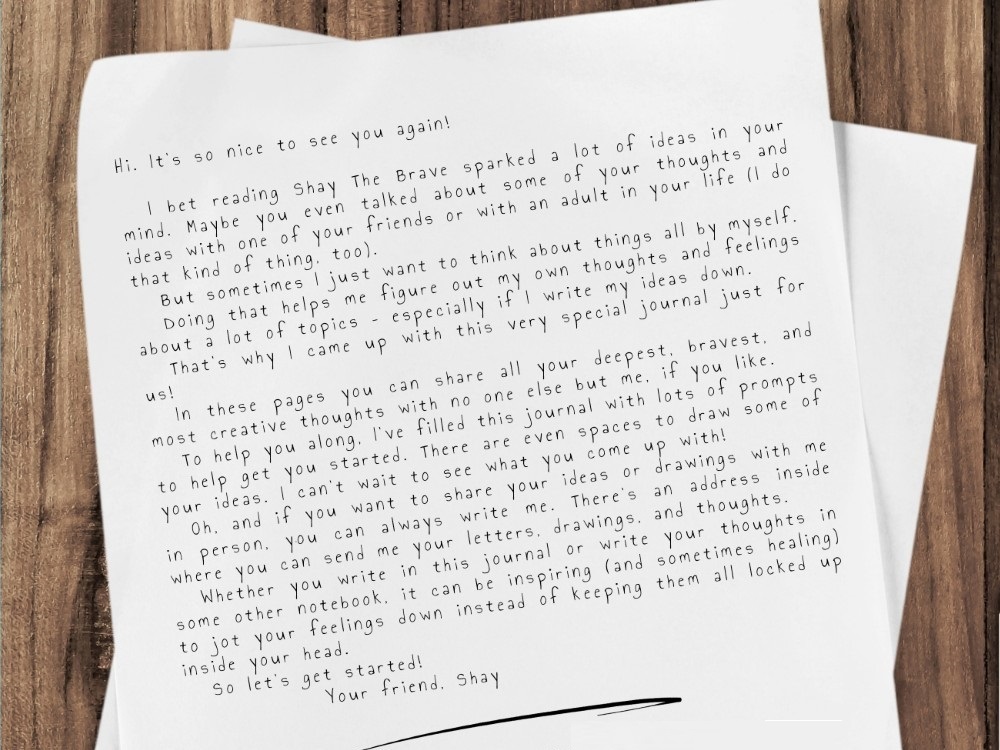 Hi. It's so nice to see you again!
I bet reading Shay The Brave sparked a lot of ideas in your
mind. Maybe you even talked about some of your thoughts and
ideas with one of your friends or with an adult in your life (I do
that kind of thing, too).
But sometimes I just want to think about things all by myself.
Doing that helps me figure out my own thoughts and feelings
about a lot of topics - especially if I write my ideas down.
That's why I came up with this very special journal just for
us!
In these pages you can share all your deepest, bravest, and
most creative thoughts with no one else but me, if you like.
To help you along, I've filled this journal with lots of prompts
to help get you started. There are even spaces to draw some of
your ideas. I can't wait to see what you come up with!
Oh, and if you want to share your ideas or drawings with me
in person, you can always write me. There's an address inside
where you can send me your letters, drawings, and thoughts.
Whether you write in this journal or write your thoughts in
some other notebook, it can be inspiring (and sometimes healing)
to jot your feelings down instead of keeping them all locked up
inside your head.
So let's get started!
Your friend, Shay